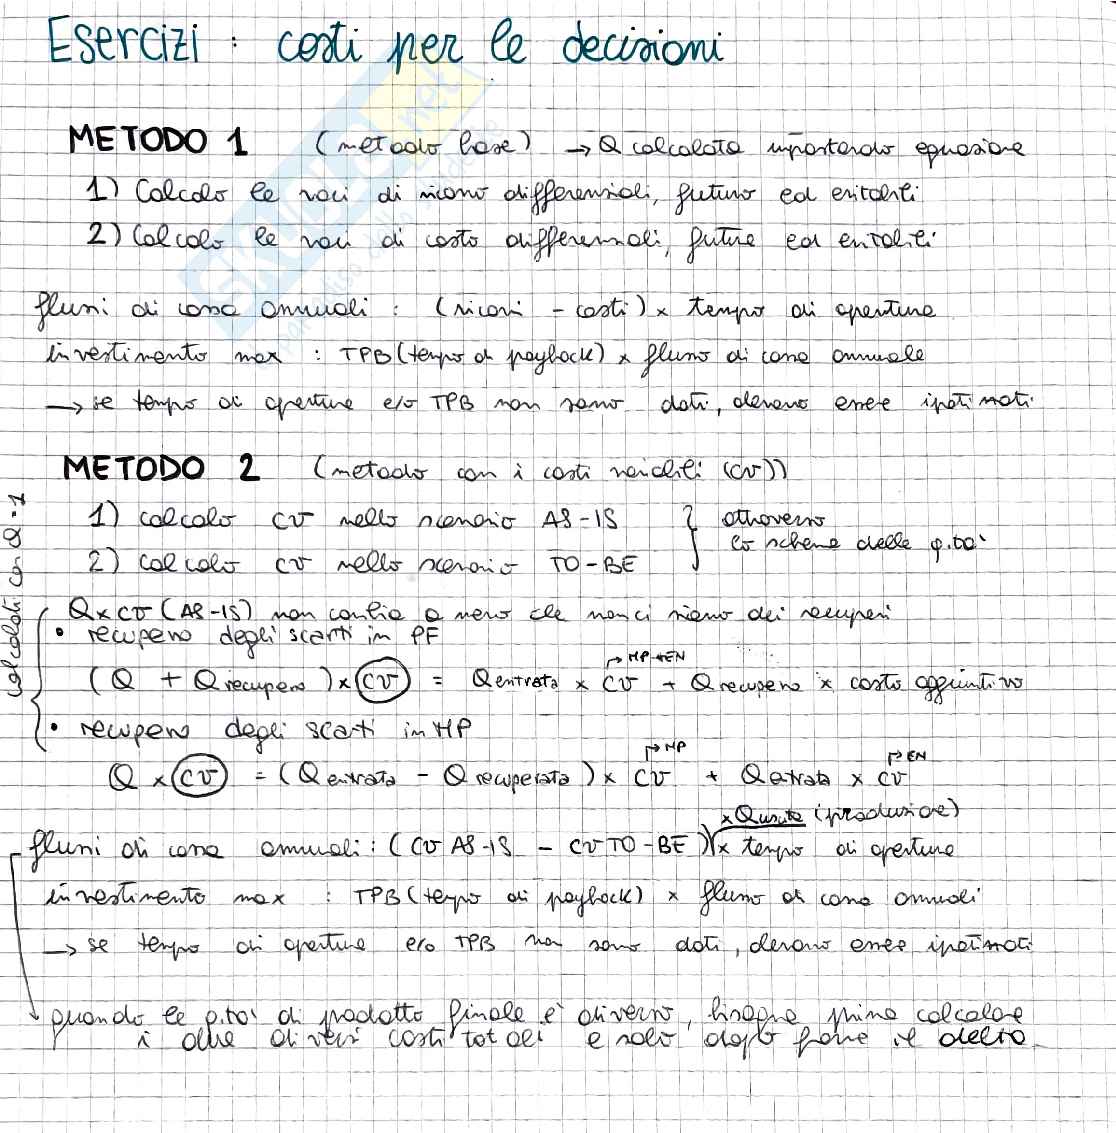 Esercizi : costi per le decisioni
METODO 1 (metodo base) → Q calcolata impostando equazione
1) Calcolo le voci di ricavo differenziali, future ed evitabili
2) Calcolo le voci di costo differenziali, future ed evitabili
flussi di cassa annuali : (ricavi - costi) × tempo di apertura
investimento max : TPB (tempo di payback) × flusso di cassa annuale
→ se tempo di apertura e/o TPB non sono dati, devono essere ipotizzati
METODO 2 (metodo con i costi variabili (CV))
1) calcolo CV nello scenario AS-IS
2) calcolo CV nello scenario TO-BE
} attraverso
lo schema delle q.tà
calcolati con Q=1
Q×CV (AS-IS) non cambia a meno che non ci siano dei recuperi
• recupero degli scarti in PF
(Q + Q recupero) × CV = Q entrata × CV → MP+EN + Q recupero × costo aggiuntivo
• recupero degli scarti in MP
Q × CV = (Q entrata - Q recuperata) × CV → MP + Q entrata × CV → EN
× Q uscita (produzione)
flussi di cassa annuali : (CV AS-IS - CV TO-BE) × tempo di apertura
investimento max : TPB (tempo di payback) × flusso di cassa annuali
→ se tempo di apertura e/o TPB non sono dati, devono essere ipotizzati
quando le q.tà di prodotto finale è diverso, bisogna prima calcolare
i due diversi costi totali e solo dopo fare il delta